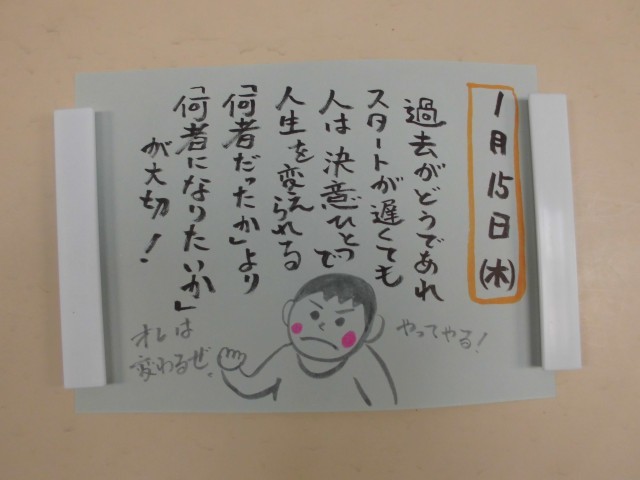 1月15日(木)
過去がどうであれ
スタートが遅くても
人は決意ひとつで
人生を変えられる
「何者だったか」より
「何者になりたいか」
が大切！
やってやる！
オレは
変わるぜ。